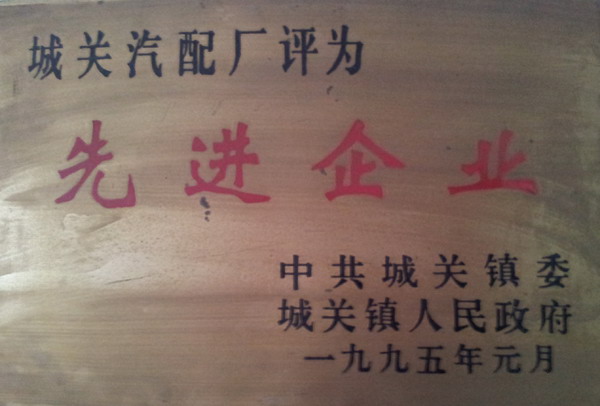 城关汽配厂评为
先进企业
中共城关镇委
城关镇人民政府
一九九五年元月